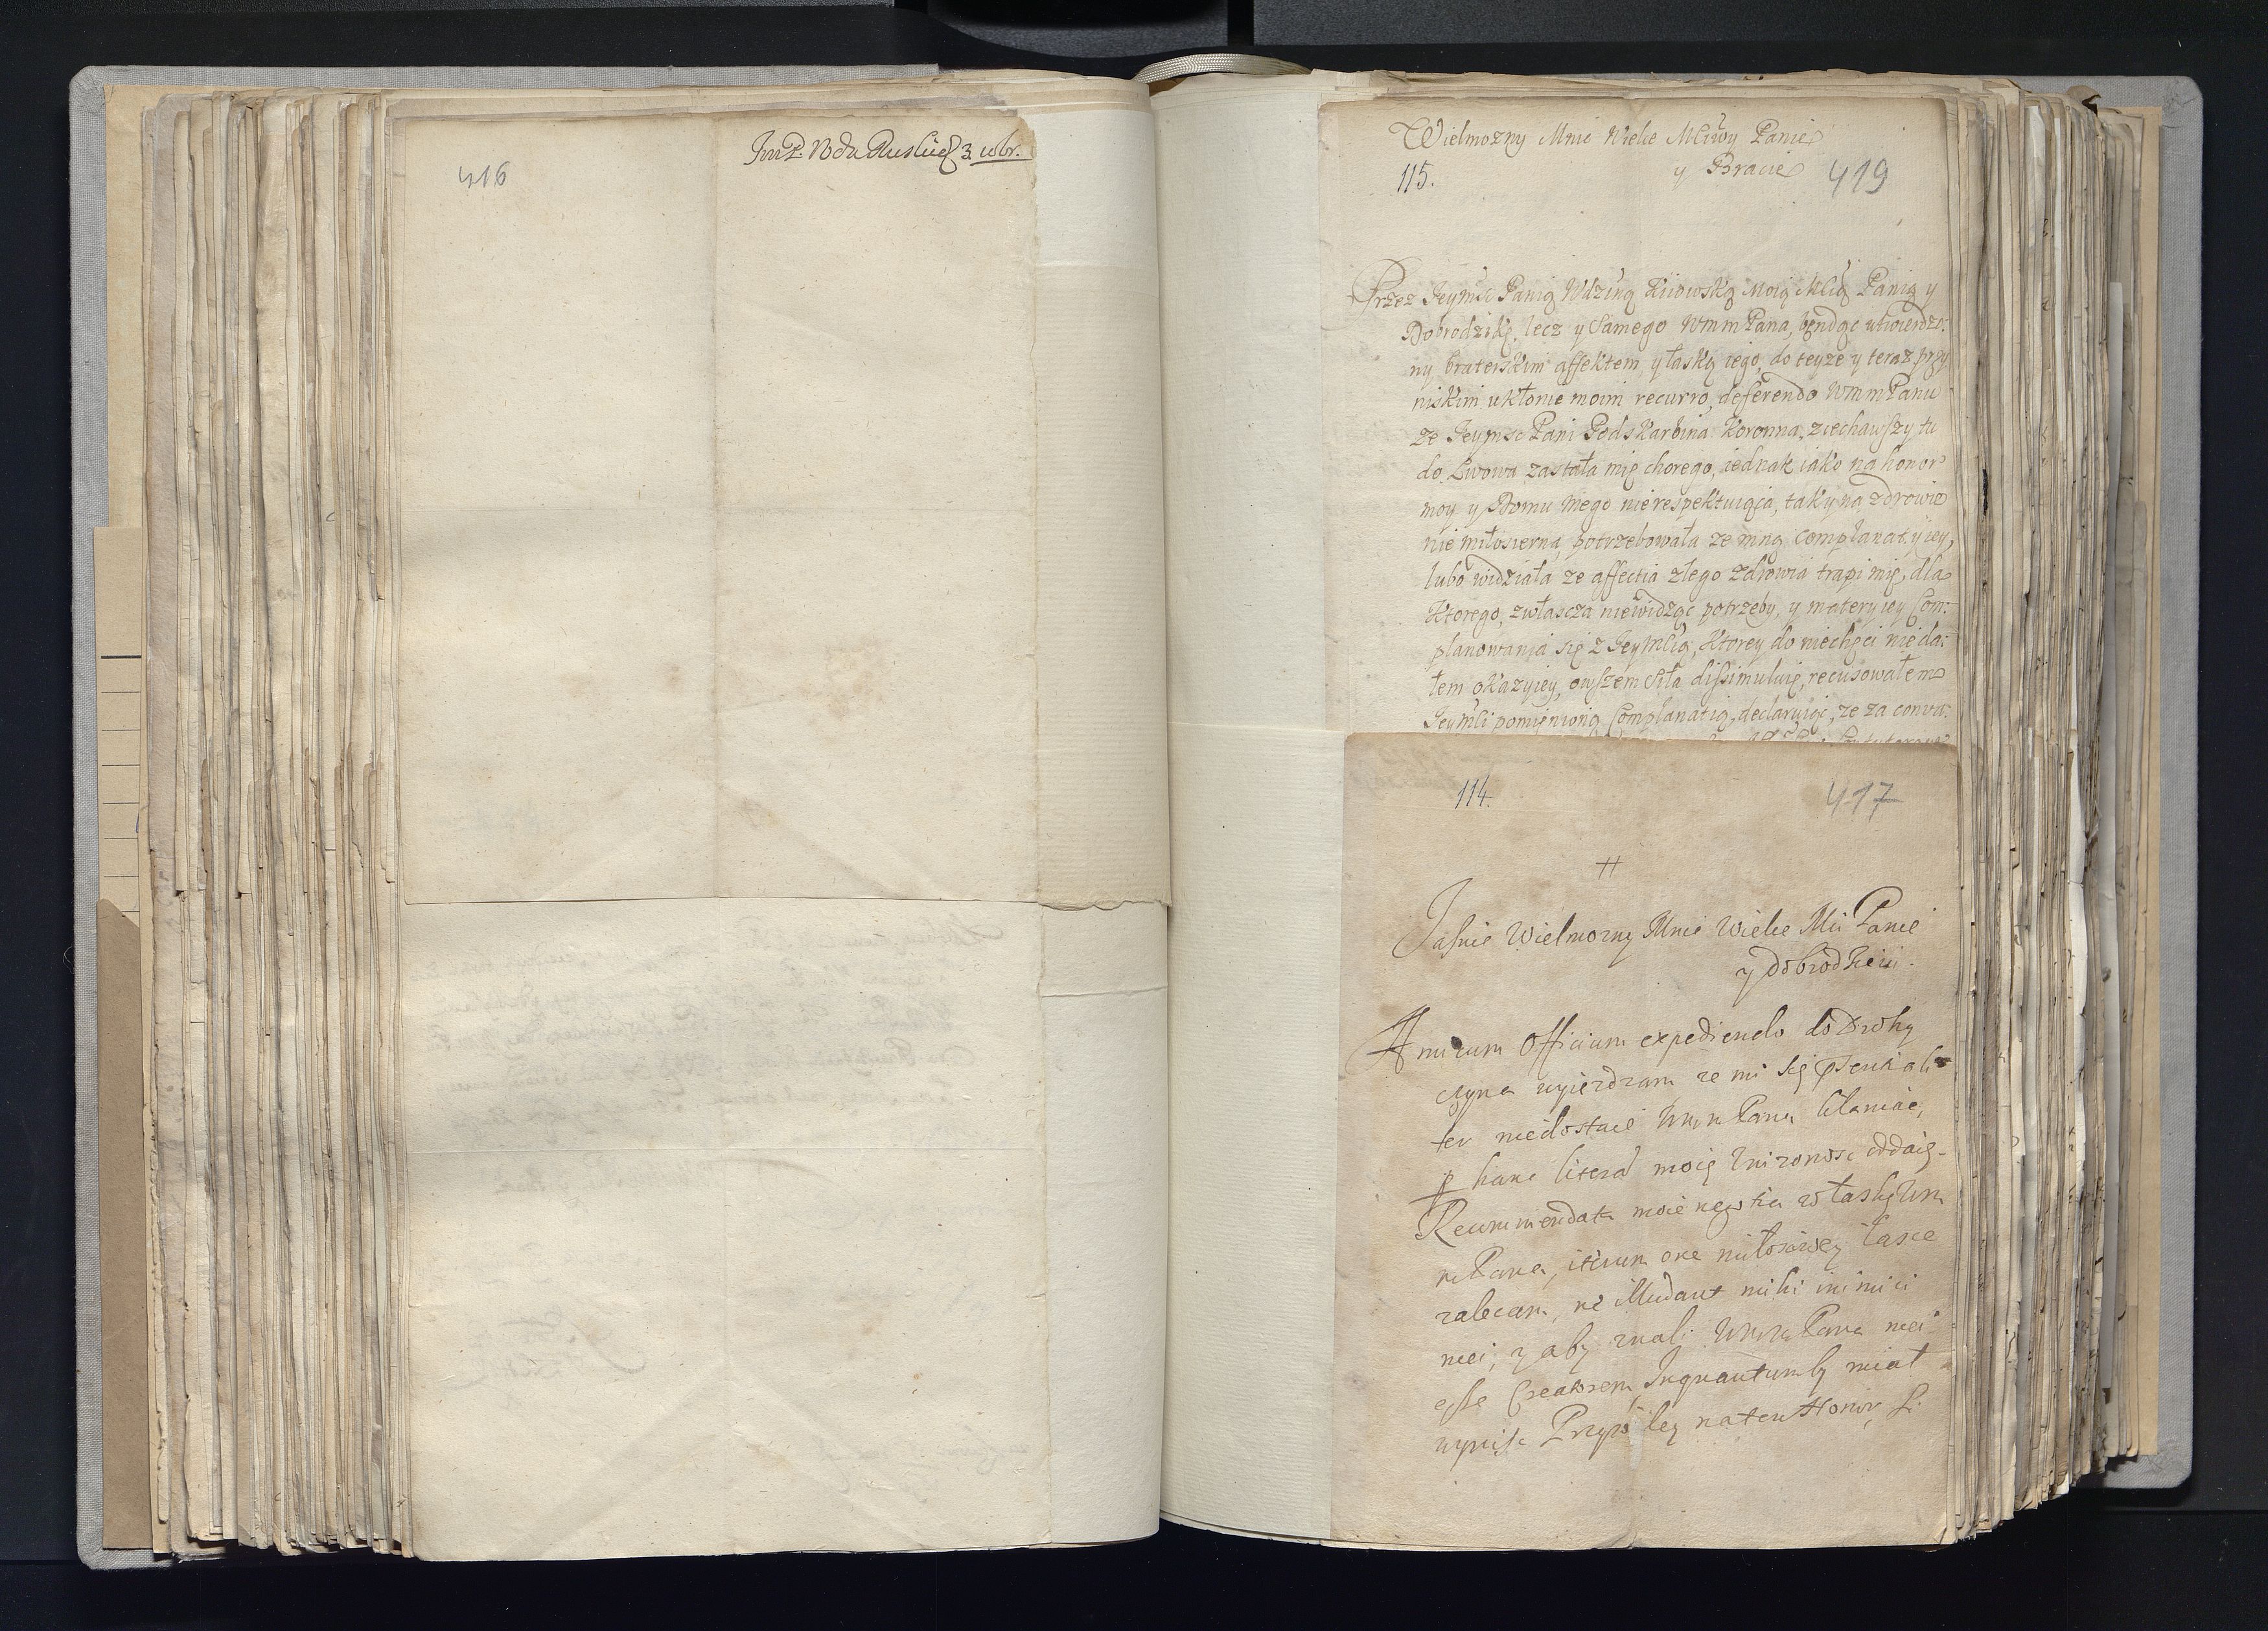 416
Jm P. Wda Ruski 3. wbr.
Wielmozny Mnie Wielce Mciwy Panie
y Bracie
115.
419
Przez Jeymsc Panią Wdziną Kiiowską Moią Mcią Panią y
Dobrodzikę, lecz y Samego WmmPana, będąc utwierdzo:
ny braterskim affektem, y łaską iego, do teyze y teraz przy
niskim ukłonie moim recurro, deferendo WmmPanu
ze Jeymsc Pani Podskarbina Koronna, ziechawszy tu
do Lwowa zastała mię chorego, iednak iako na honor
moy y Domu mego nierespektuiąca, tak y na zdrowie
nie miłosierna, potrzebowała ze mną complanatyiey,
lubo widziała ze affectia złego zdrowia trapi mię, dla
Ktorego, zwłascza niewidząc potrzeby, y materyiey Com:
planowania się z Jeymcią, Ktorey do niechęci nie da:
łem okazyiey, owszem siła dissimuluię, recusowałem
Jeymci pomienioną Complanatią, declaruiąc, ze za conva:
114.
417
Jasnie Wielmozny Mnie Wielce Mci Panie
y dobrodzieiu.
Amicum Officium expediendo do Drohy
czyna wyiezdzam ze mi się praesentiali
ter niedostaie WmmPanu kłaniac,
p hanc literam moię unizonosc oddaię.
Recommendata moie negotia w łaskę Wm
mPana, iterum one miłosciwey łasce
zalecam, ne illudant mihi inimici
mei, y aby znali WmmPana mei
esse Creatorem, Inquantumby miał
wynisc Przywiley na ten Honor, Si